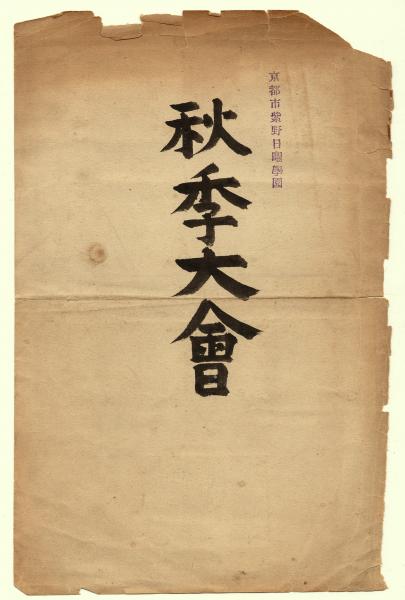 京都市紫野日曜學園
秋季大會